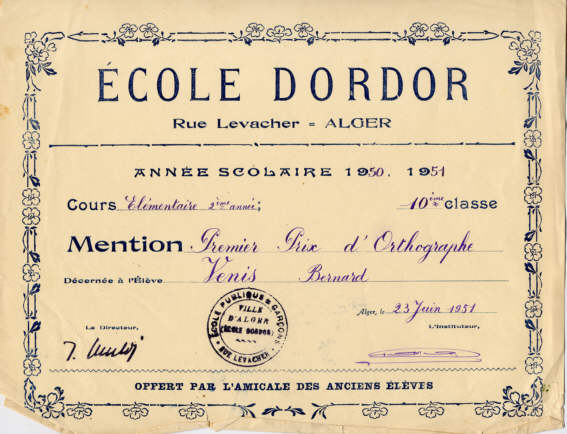 ÉCOLE DORDOR
Rue Levacher = ALGER
ANNÉE SCOLAIRE 1950. 1951
Cours Elémentaire 2ème année; 10ème classe
Mention Premier Prix d'Orthographe
Décernée à l'Élève Venis Bernard
ÉCOLE PUBLIQUE GARÇONS
VILLE
D'ALGER
(ÉCOLE DORDOR)
RUE LEVACHER
Alger, le 23 Juin 1951
Le Directeur, L'Instituteur,
OFFERT PAR L'AMICALE DES ANCIENS ÉLÈVES